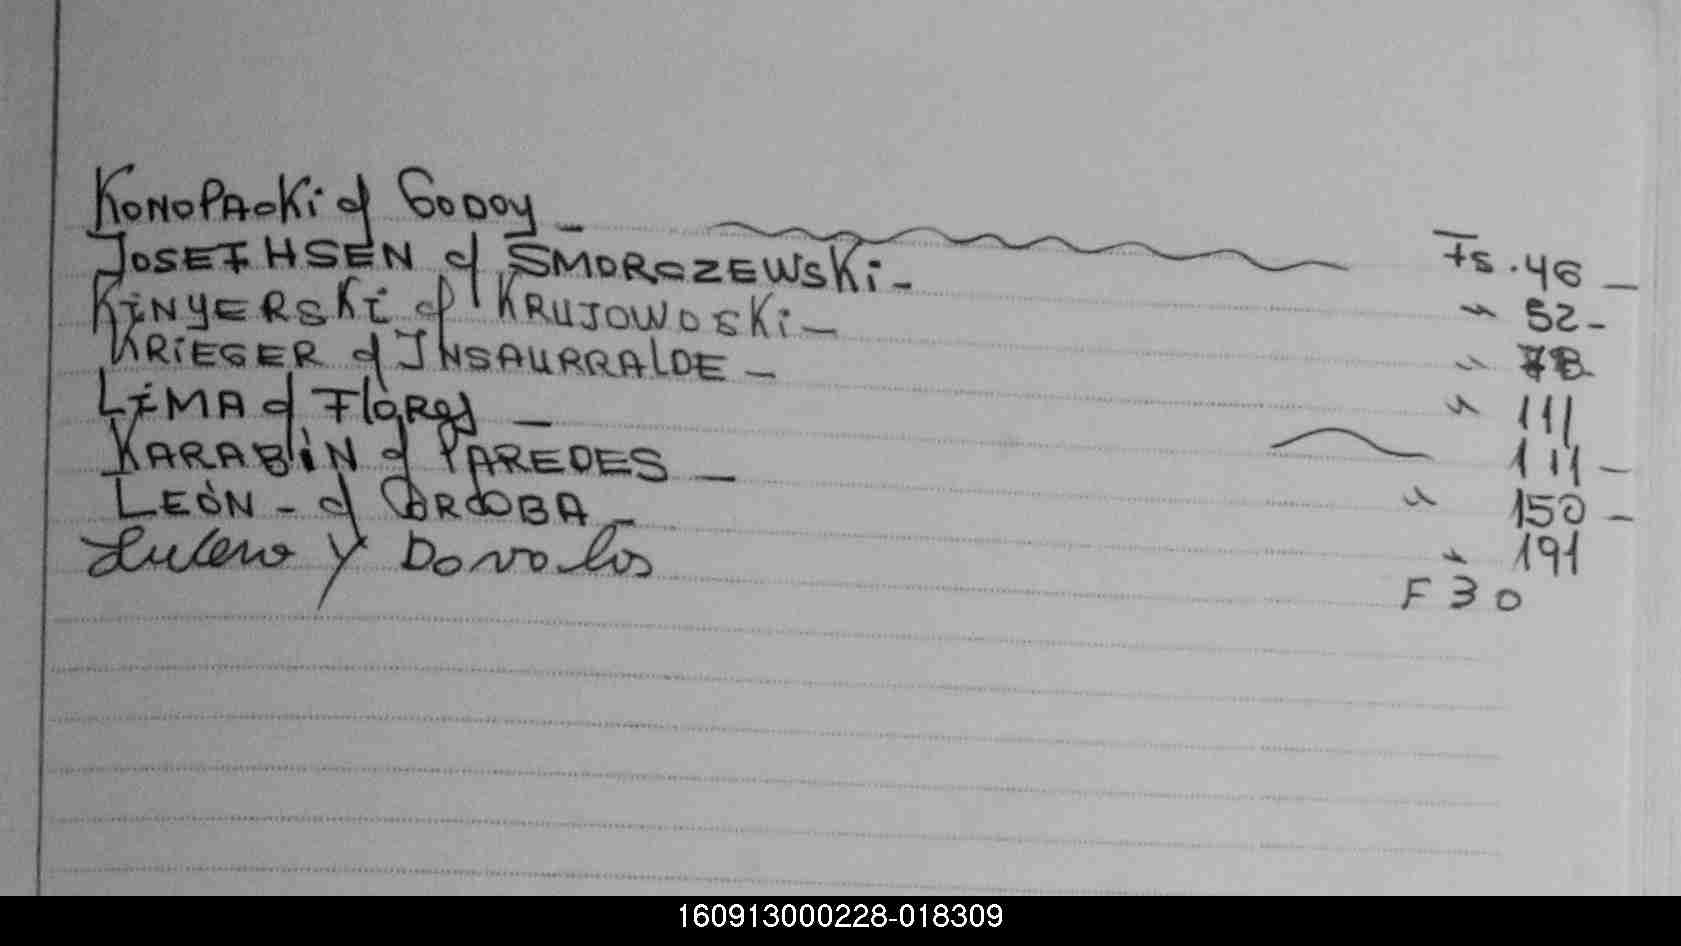 KONOPACKi y GODOY _ Fs. 46 _
JOSEFHSEN y SMORCZEWSKi - " 52 -
KiNYERSKi y KRUJOWOSKi - " 78
KRiEGER y INSAURRALDE - " 111
LiMA y FlORES _ 111 -
KARABiN y PAREDES _ " 150 -
LEÓN - y CÓRDOBA - " 191
y Dovalos F 30
160913000228-018309